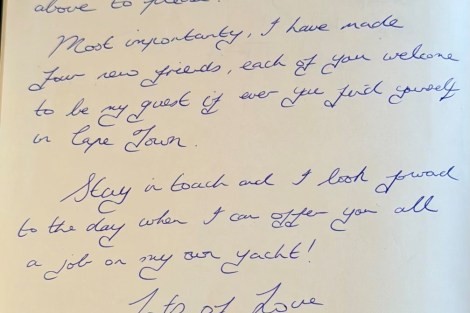 above to please.
Most importanty, I have made
four new friends, each of you welcome
to be my guest if ever you find yourself
in Cape Town.
Stay in touch and I look forward
to the day when I can offer you all
a job on my own yacht!
Lots of Love